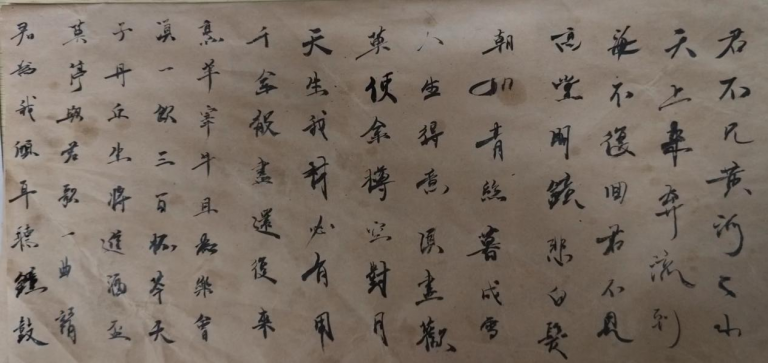 君不见黄河之水
天上来奔流到
海不復回君不見
高堂明鏡悲白髮
朝如青絲暮成雪
人生得意須盡歡
莫使金樽空對月
天生我材必有用
千金散盡還復來
烹羊宰牛且為樂會
須一飲三百杯岑夫
子丹丘生將進酒盃
莫停與君歌一曲請
君為我傾耳聽鐘鼓